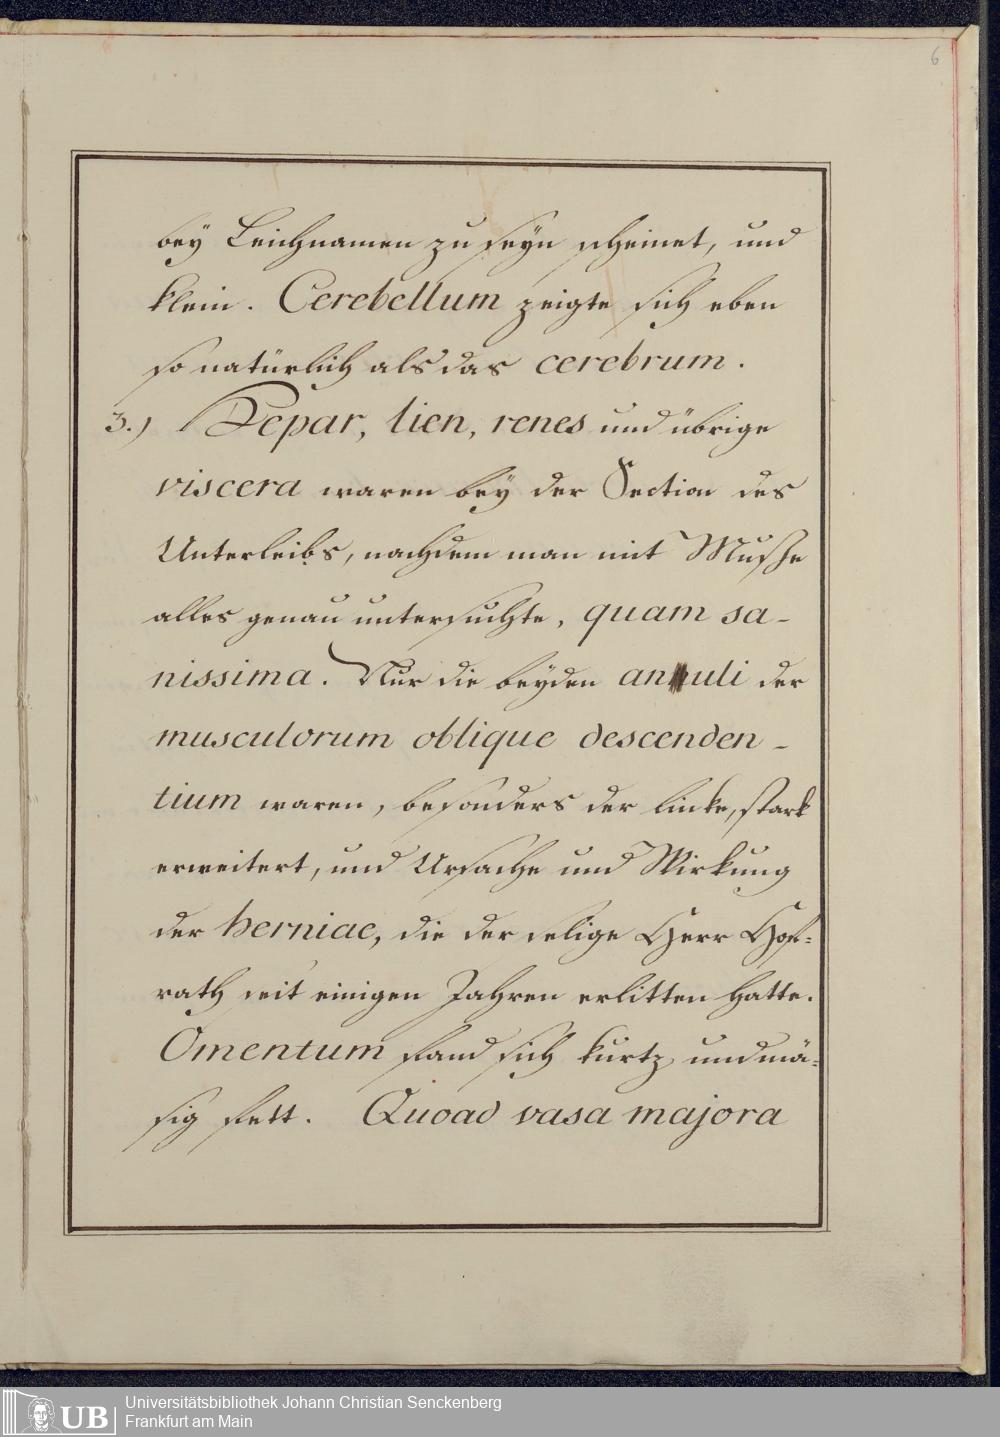 6
bey Leichnamen zu seyn scheinet, und
klein. Cerebellum zeigte sich eben
so natürlich als das cerebrum.
3.) Hepar, lien, renes und übrige
viscera waren bey der Section des
Unterleibs, nachdem man mit Musße
alles genau untersuchte, quam sa-
nissima. Nur die beyden annuli der
musculorum oblique descenden-
tium waren, besonders der linke, stark
erweitert, und Ursache und Wirkung
der herniae, die der selige Herr Hof-
rath seit einigen Jahren erlitten hatte.
Omentum fand sich kurtz, und mä-
sig fett. Quoad vasa majora
UB
Universitätsbibliothek Johann Christian Senckenberg
Frankfurt am Main